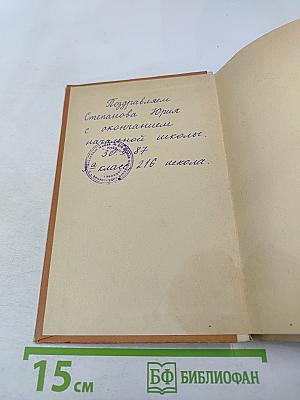 Поздравляем
Степанова Юрия
с окончанием
начальной школы.
30 87
3а класс 216 школа.
15 см
БФ БИБЛИОФАН